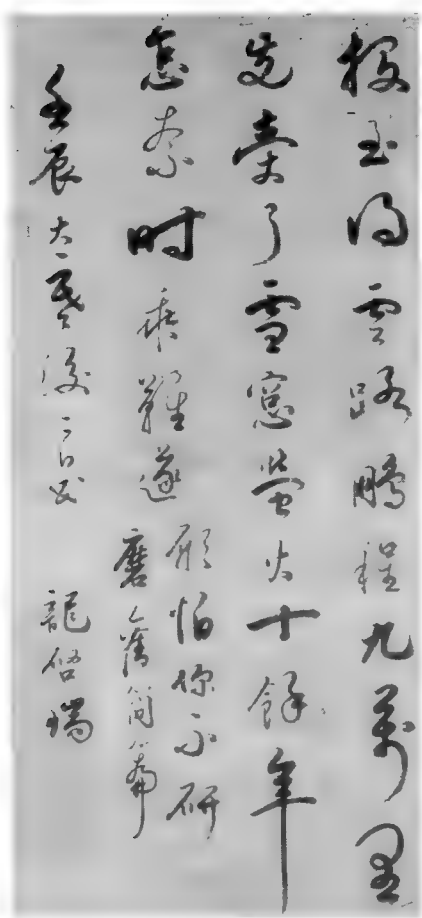 投至得雲路鵬程九萬里
先了雪窗螢火十餘年
怎奈時乖難遂
願怕你不研
磨舊簡篇
壬辰大暑後二日書 龍啓瑞